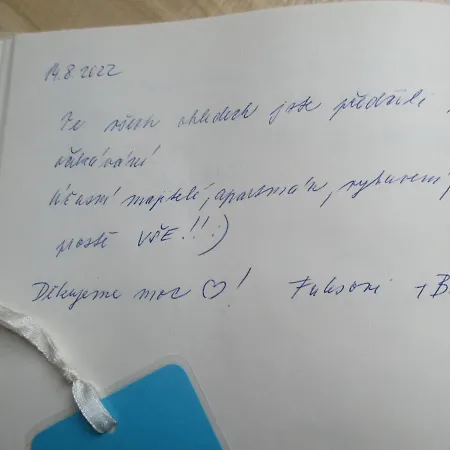 14.8.2022
Ve všech ohledech jste předčili
očekávání
Úžasní majitelé, apartmán, vybavení,
prostě VŠE!!! :)
Děkujeme moc ♡! +B